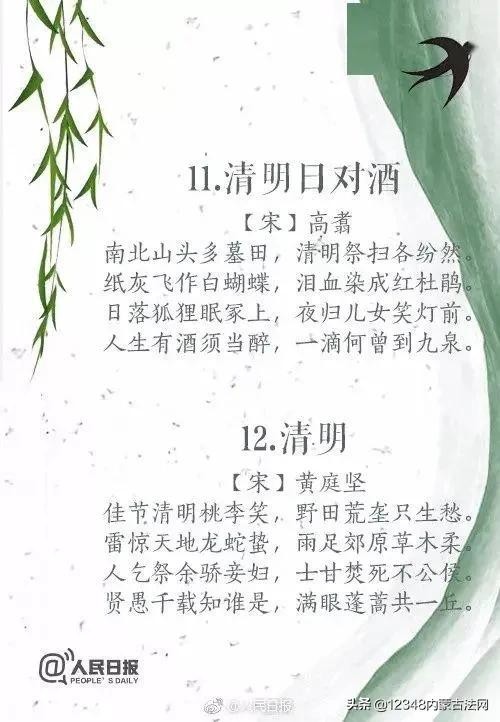 11.清明日对酒
【宋】高翥
南北山头多墓田，清明祭扫各纷然。
纸灰飞作白蝴蝶，泪血染成红杜鹃。
日落狐狸眠冢上，夜归儿女笑灯前。
人生有酒须当醉，一滴何曾到九泉。
12.清明
【宋】黄庭坚
佳节清明桃李笑，野田荒垄只生愁。
雷惊天地龙蛇蛰，雨足郊原草木柔。
人乞祭余骄妾妇，士甘焚死不公侯。
贤愚千载知谁是，满眼蓬蒿共一丘。
@人民日报
PEOPLE'S DAILY
@人民日报
头条 @12348内蒙古法网